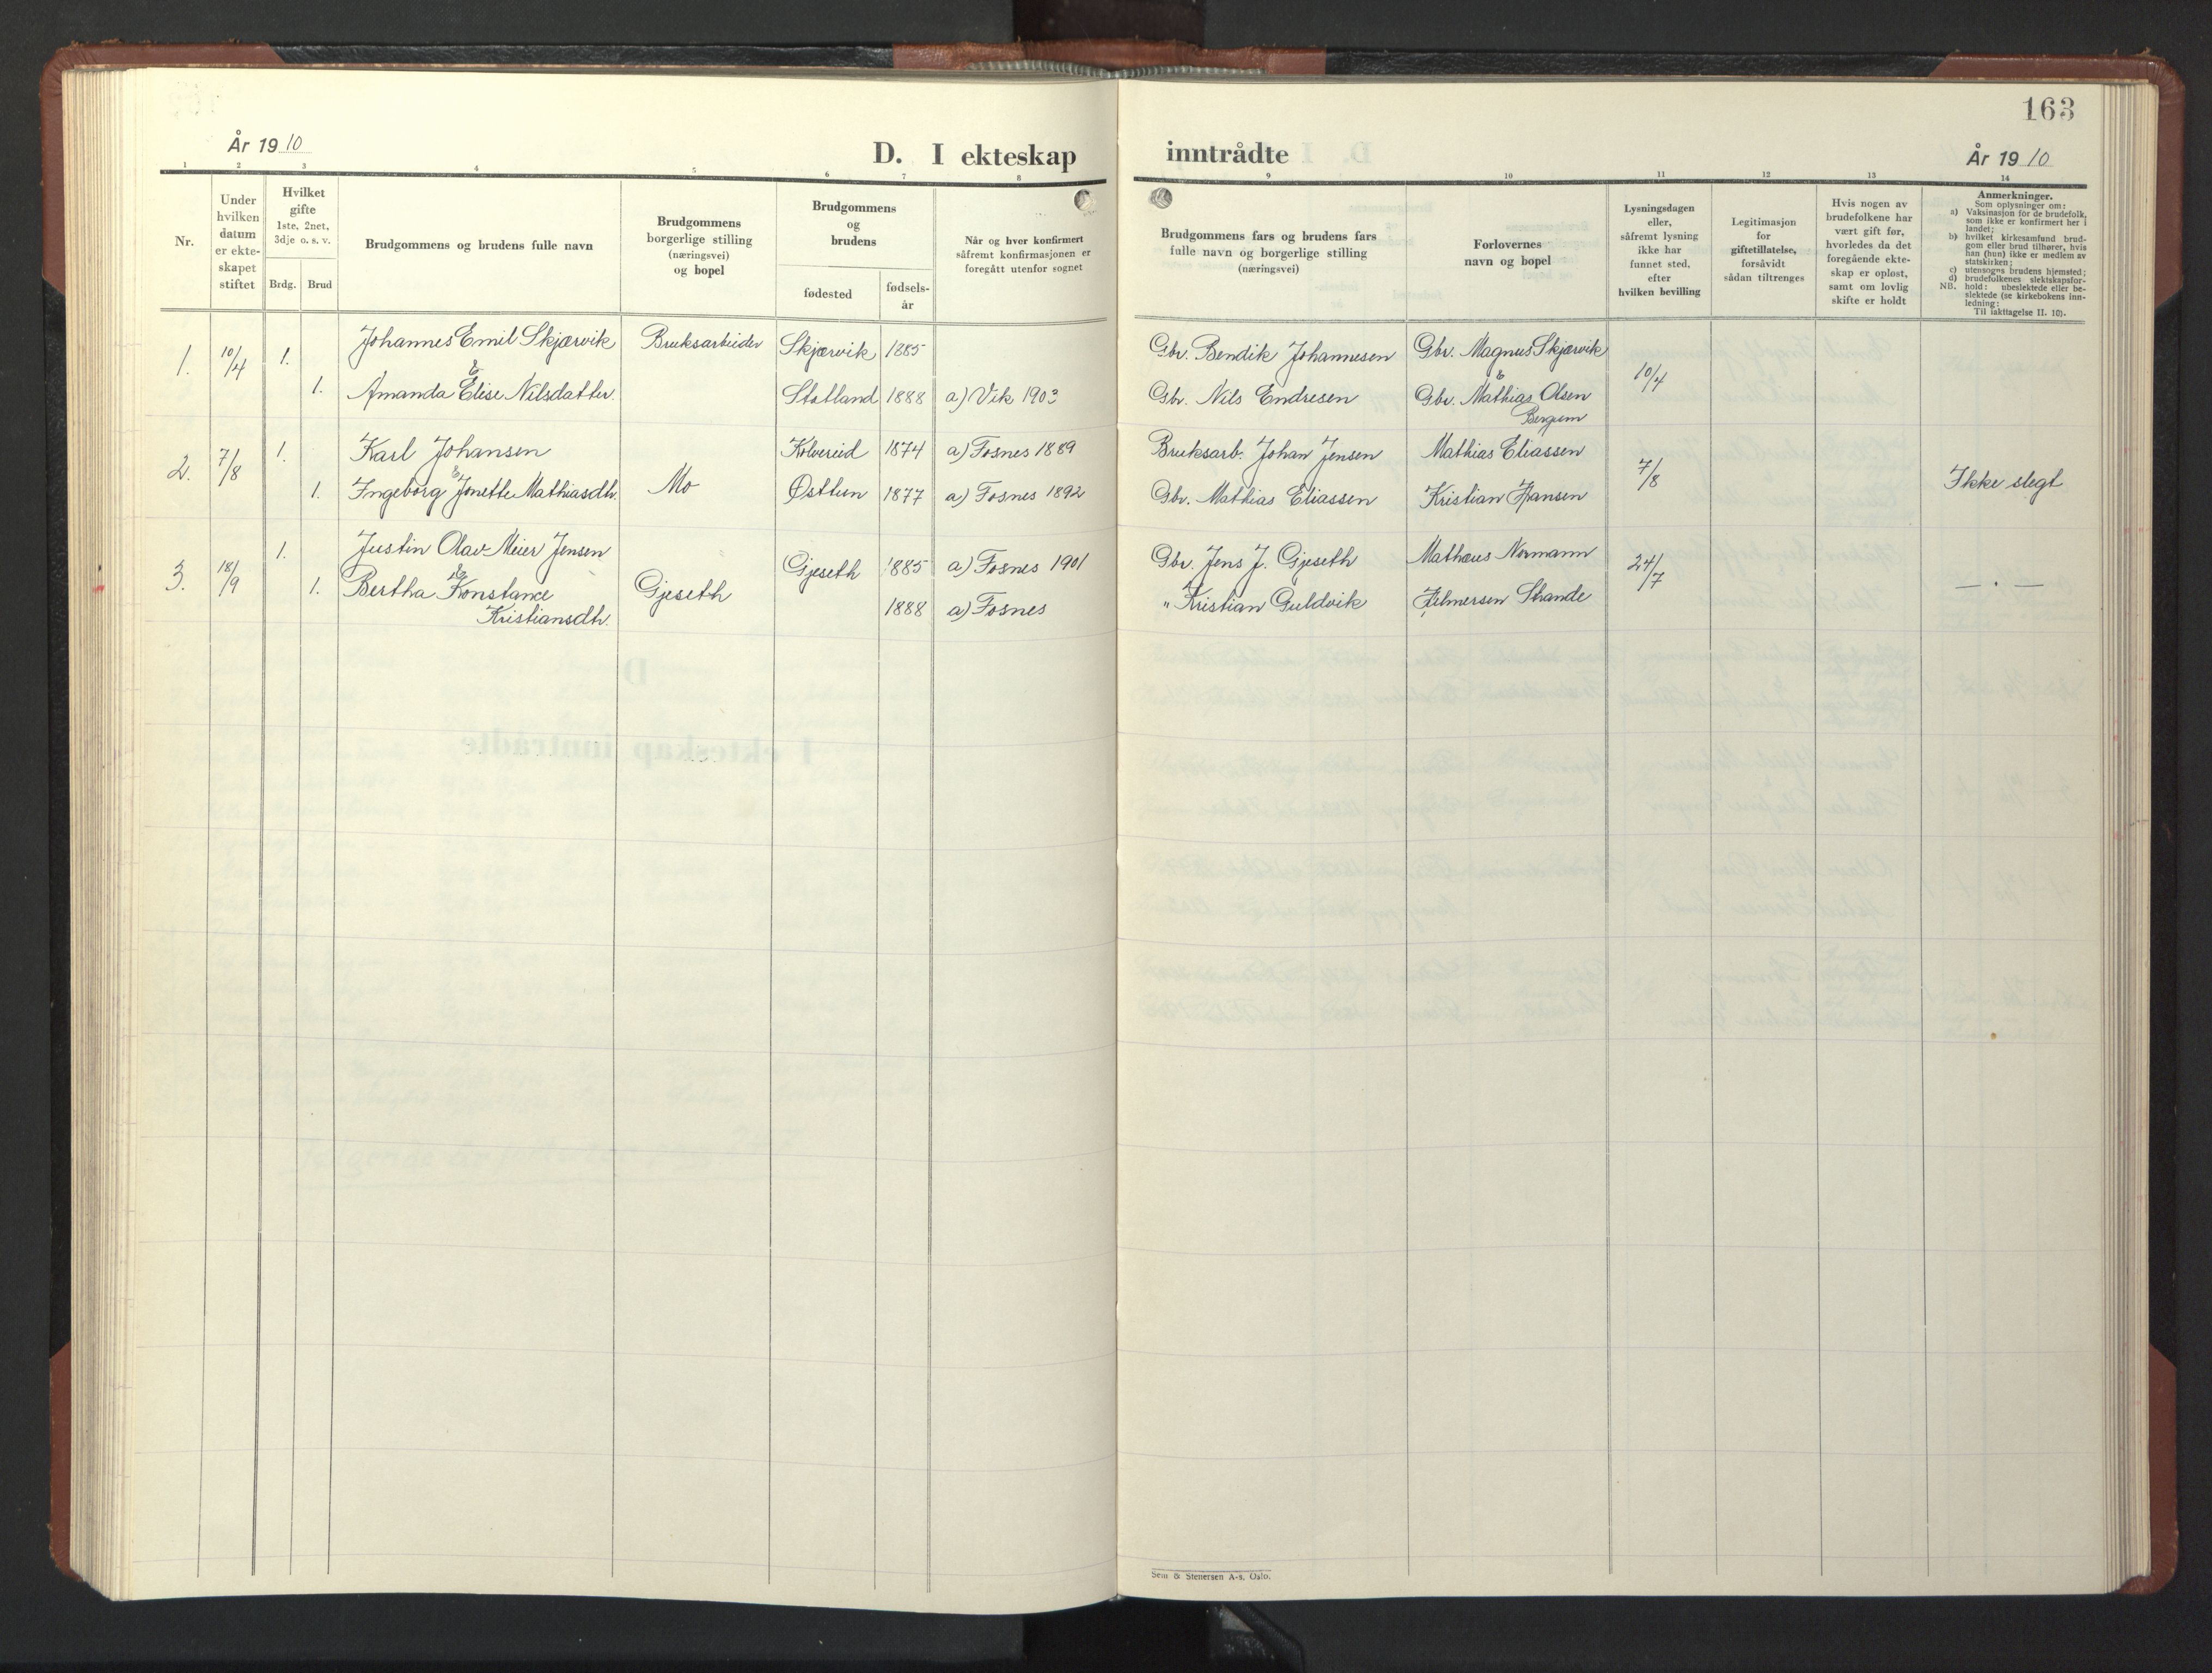 163
År 1910
D. I ekteskap inntrådte
År 1910
1 2 3 4 5 6 7 8 9 10 11 12 13 14
Nr.
Under
hvilken
datum
er ekte-
skapet
stiftet
Hvilket
gifte
1ste, 2net,
3dje o. s. v.
Brdg. Brud
Brudgommens og brudens fulle navn
Brudgommens
borgerlige stilling
(næringsvei)
og bopel
Brudgommens
og
brudens
fødested
fødsels-
år
Når og hver konfirmert
såfremt konfirmasjonen er
foregått utenfor sognet
Brudgommens fars og brudens fars
fulle navn og borgerlige stilling
(næringsvei)
Forlovernes
navn og bopel
Lysningsdagen
eller,
såfremt lysning
ikke har
funnet sted,
efter
hvilken bevilling
Legitimasjon
for
giftetillatelse,
forsåvidt
sådan tiltrenges
Hvis nogen av
brudefolkene har
vært gift før,
hvorledes da det
foregående ekte-
skap er opløst,
samt om lovlig
skifte er holdt
Anmerkninger.
Som oplysninger om:
a) Vaksinasjon for de brudefolk,
som ikke er konfirmert her i
landet;
b) hvilket kirkesamfund brud-
gom eller brud tilhører, hvis
han (hun) ikke er medlem av
statskirken;
c) utensogns brudens hjemsted;
d) brudefolkenes slektskapsfor-
NB. hold: ubeslektede eller be-
slektede (se kirkebokens inn-
ledning:
Til iakttagelse II. 10).
1. 10/4 1. Johannes Emil Skjærvik Bruksarbeider Skjærvik 1885 Gbr. Bendik Johannesen Gbr. Magnus Skjærvik 10/4
&
1. Amanda Elise Nilsdatter. Statland 1888 a) Vik 1903 Gbr. Nils Endresen Gbr. Mathias Olsen
Bergum
2. 7/8 1. Karl Johansen Mo Kolvereid 1874 a) Fosnes 1889 Bruksarb. Johan Jensen Mathias Eliassen 7/8 Ikke slegt
&
1. Ingeborg Jonette Mathiasdtr. Østtun 1877 a) Fosnes 1892 Gbr. Mathias Eliassen Kristian Hansen
3. 18/9 1. Justin Olav Meier Jensen Gjeseth Gjeseth 1885 a) Fosnes 1901 Gbr. Jens J. Gjeseth Mathæus Normann 24/7 — . —
&
1. Bertha Konstance 1888 a) Fosnes " Kristian Guldvik Hilmersen Strande
Kristiansdtr.
Sem & Stenersen A-s, Oslo.